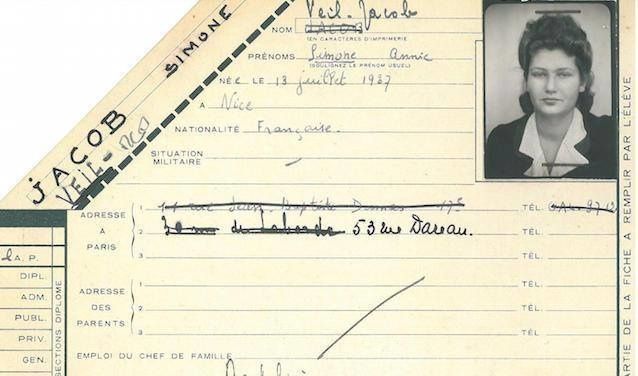 Veil-Jacob
NOM JACOB
(EN CARACTÈRES D'IMPRIMERIE)
PRÉNOMS Simone Annie
(SOULIGNEZ LE PRÉNOM USUEL)
NÉE LE 13 juillet 1927
A Nice
NATIONALITÉ Française.
SITUATION
MILITAIRE
JACOB SIMONE
VEIL-
ADRESSE
A
PARIS
1 11 rue Jean-Baptiste Dumas 17e TÉL.
2 de Laborde 53 rue Dareau. TÉL.
3 TÉL.
ADRESSE
DES
PARENTS
1 TÉL.
2 TÉL.
3 TÉL.
EMPLOI DU CHEF DE FAMILLE
A. P.
DIPL.
ADM.
PUBL.
PRIV.
GEN.
SECTIONS DIPLOME
PARTIE DE LA FICHE A REMPLIR PAR L'ÉLÈVE